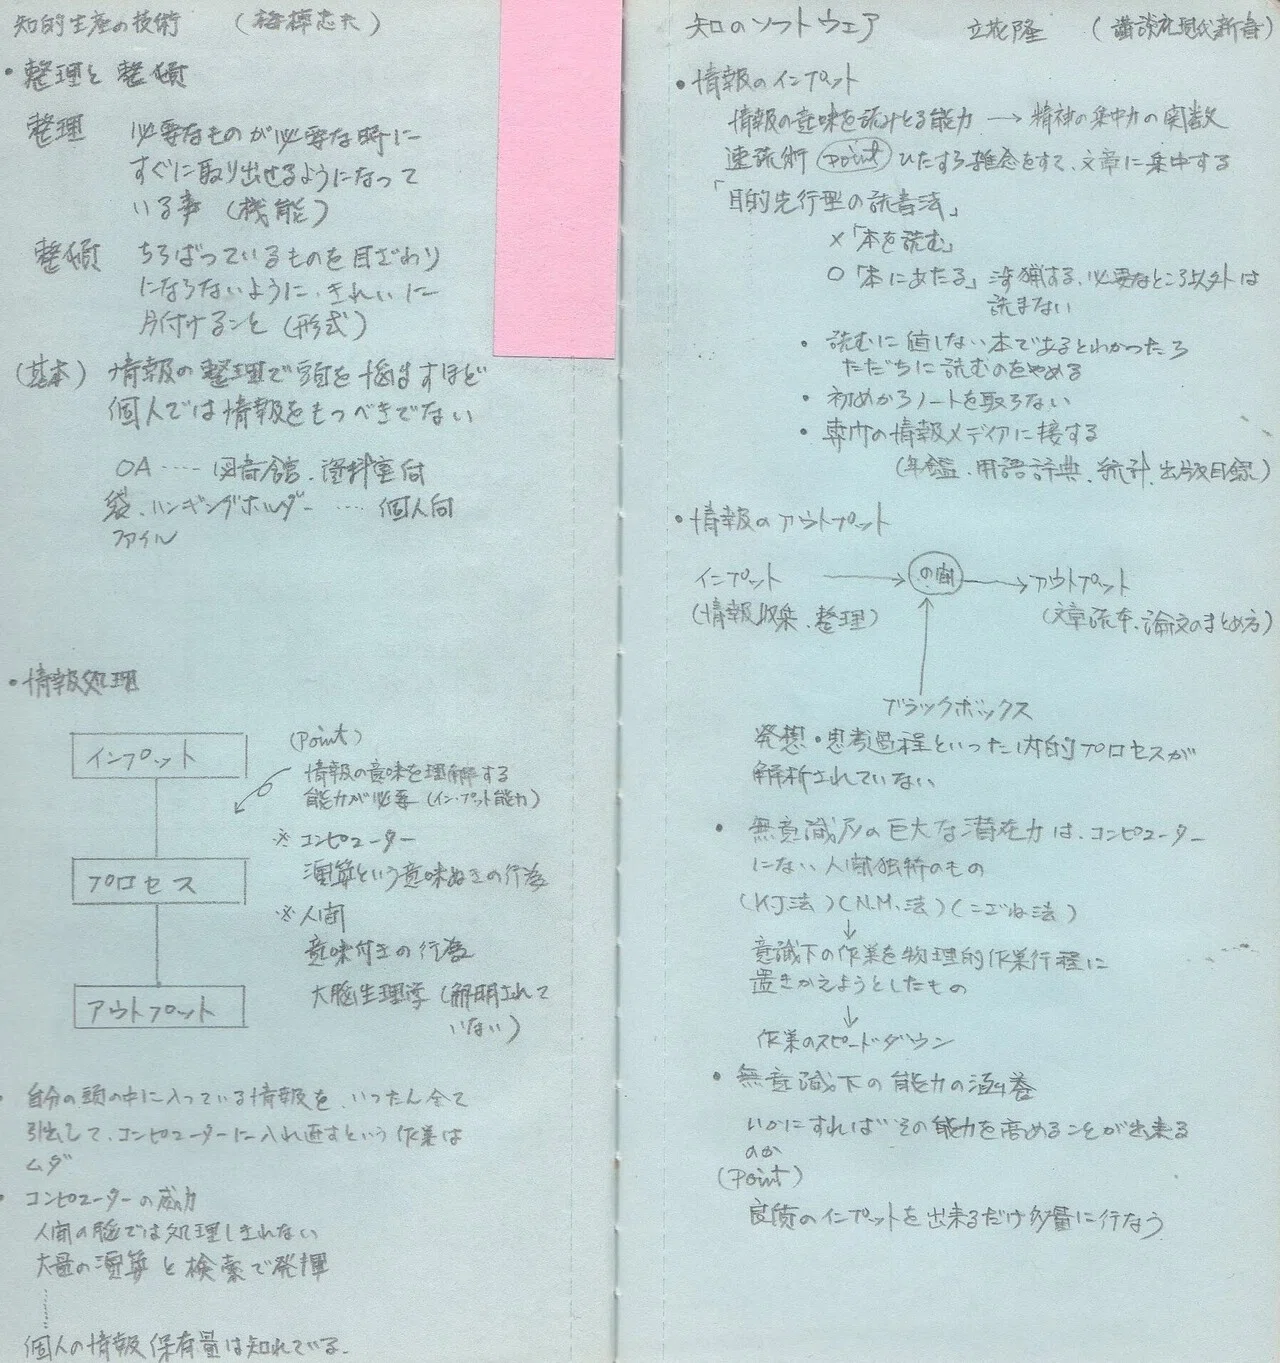 知的生産の技術 (梅棹忠夫)
・整理と整頓
整理 必要なものが必要な時に
すぐに取り出せるようになって
いる事 (機能)
整頓 ちらばっているものを目ざわり
にならないように、きれいに
片付けること (形式)
(基本) 情報の整理で頭を悩ますほど
個人では情報をもつべきでない
OA ‥‥ 図書館、資料室向
袋、ハンギングホルダー ‥‥ 個人向
ファイル
・情報処理
インプット
(Point)
情報の意味を理解する
能力が必要 (インプット能力)
※ コンピューター
演算という意味ぬきの行為
プロセス
※ 人間
意味付きの行為
大脳生理学 (解明されて
いない)
アウトプット
・自分の頭の中に入っている情報を、いったん全て
引出して、コンピューターに入れ直すという作業は
ムダ
・コンピューターの威力
人間の脳では処理しきれない
大量の演算と検索で発揮
個人の情報保有量は知れている。
知のソフトウェア 立花隆 (講談社現代新書)
・情報のインプット
情報の意味を読みとる能力 → 精神の集中力の関数
速読術 (Point) ひたすら雑念をすて、文章に集中する
「目的先行型の読書法」
×「本を読む」
○「本にあたる」渉猟する、必要なところ以外は
読まない
・読むに値しない本であるとわかったら
ただちに読むのをやめる
・初めからノートを取らない
・専門の情報メディアに接する
(年鑑、用語辞典、統計、出版目録)
・情報のアウトプット
インプット → の間 → アウトプット
(情報収集、整理) (文章読本、論文のまとめ方)
ブラックボックス
発想・思考過程といった内的プロセスが
解析されていない
・無意識層の巨大な潜在力は、コンピューター
にない、人間独特のもの
(KJ法) (N.M.法) (こざね法)
↓
意識下の作業を物理的作業行程に
置きかえようとしたもの
↓
作業のスピードダウン
・無意識下の能力の涵養
いかにすればその能力を高めることが出来る
のか
(Point)
良質のインプットを出来るだけ多量に行なう